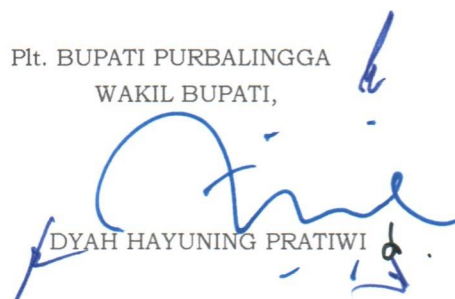 Plt. BUPATI PURBALINGGA
WAKIL BUPATI,
DYAH HAYUNING PRATIWI